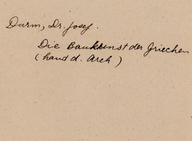 Durm, Dr. Josef.
Die Baukunst der Griechen
(hand d. Arch)